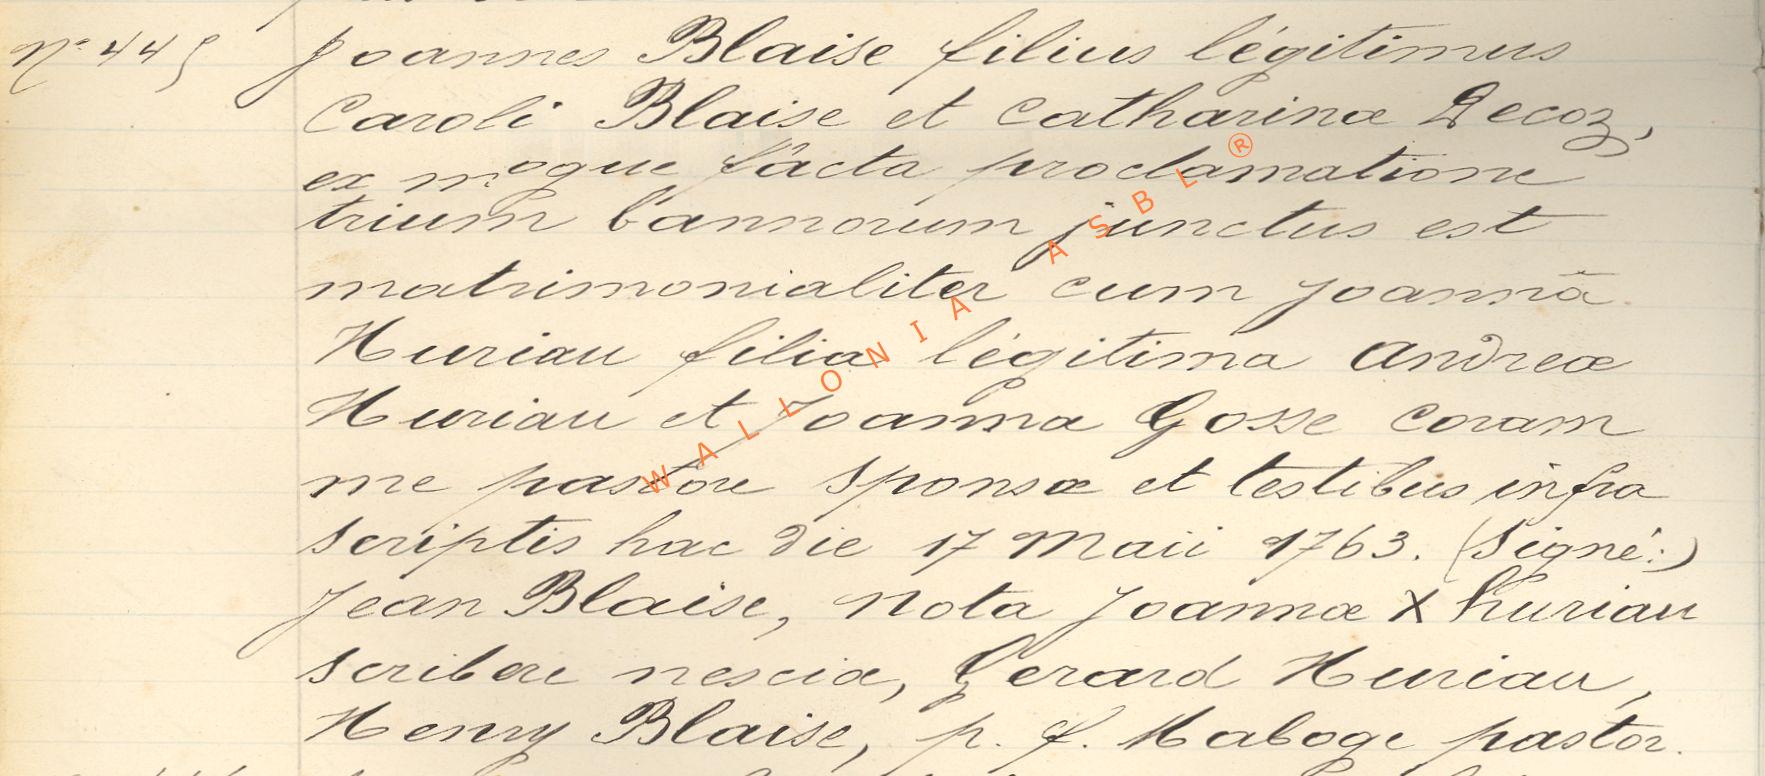 N° 445 Joannes Blaise filius légitimus
Caroli Blaise et Catharinæ Decoz,
facta proclamatione
trium bannorum junctus est
matrimonialiter cum Joannâ
Huriau filia légitima Andreæ
Huriau et Joanna Gosse coram
me pastore sponsæ et testibus infra
scriptis hac die 17 Maii 1763. (Signé:)
Jean Blaise, nota Joannæ X huriau
scribere nesciæ, Gerard Huriau,
Henry Blaise, p. f. Maboge pastor.
WALLONIA ASBL ®